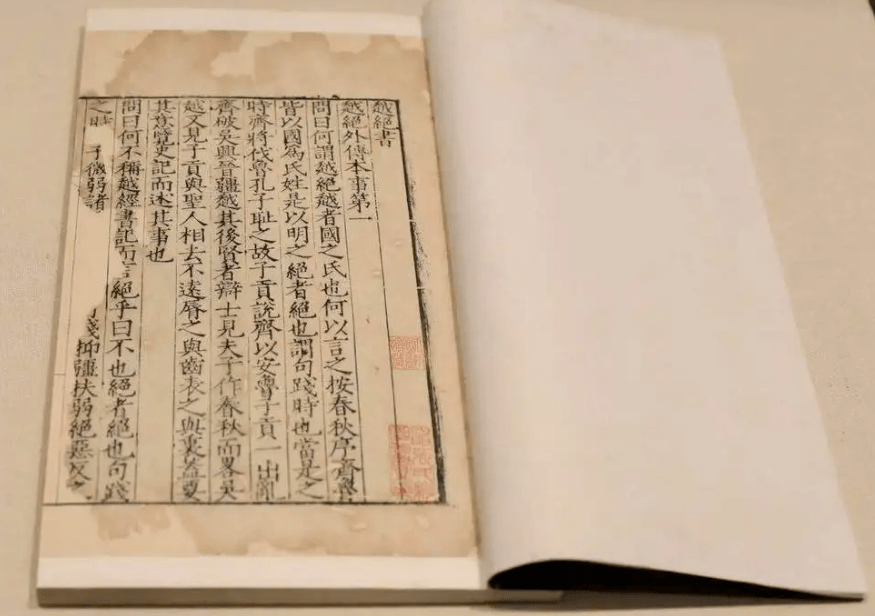 越絕書
越絕外傳本事第一
問曰何謂越絕越者國之氏也何以言之按春秋序齊魯
皆以國爲氏姓是以明之絕者絕也謂句踐時也當是之
時齊將伐魯孔子恥之故子貢說齊以安魯子貢一出亂
齊破吳興晉疆越其後賢者辯士見夫子作春秋而畧吳
越又見子貢與聖人相去不遠脣之與齒表之與裏蓋要
其意覽史記而述其事也
問曰何不稱越經書記而言絕乎曰不也絕者絕也句踐
之時 子微弱諸 踐抑疆扶弱絕惡反之